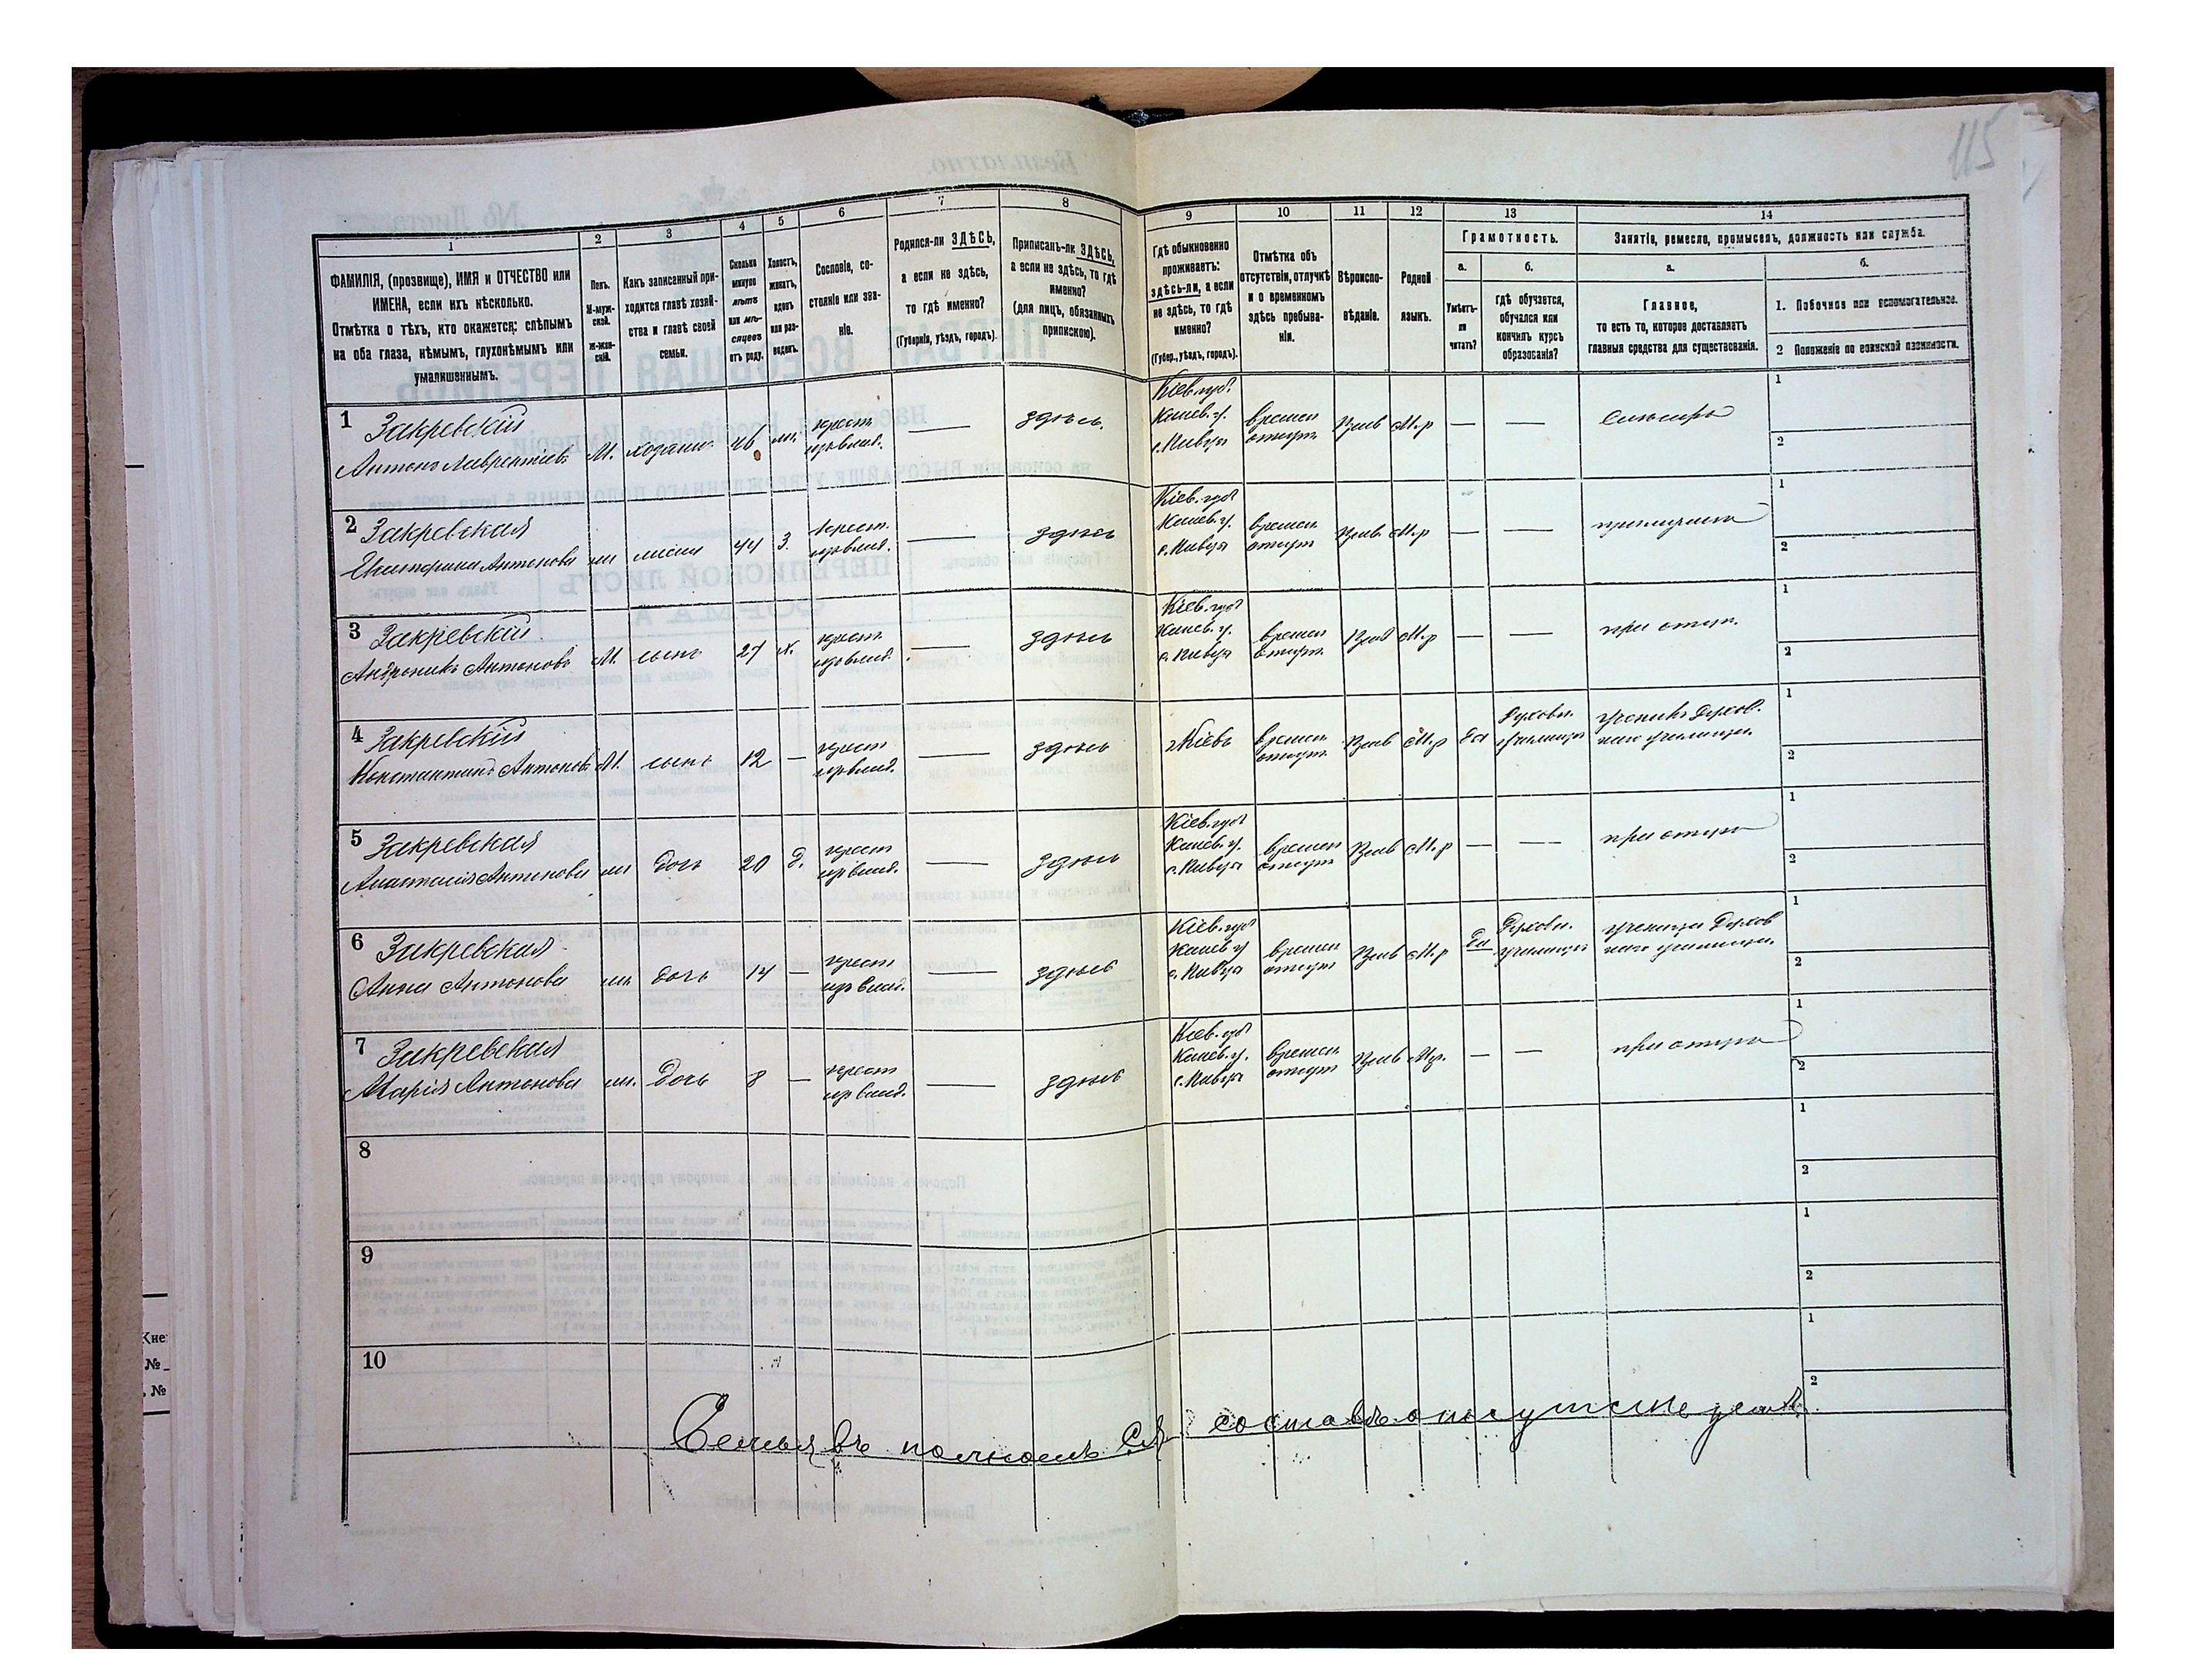 115
1 2 3 4 5 6 7 8 9 10 11 12 13 14
ФАМИЛІЯ, (прозвище), ИМЯ и ОТЧЕСТВО или
ИМЕНА, если ихъ нѣсколько.
Отмѣтка о тѣхъ, кто окажется: слѣпымъ
на оба глаза, нѣмымъ, глухонѣмымъ или
умалишеннымъ.
Полъ.
М-муж-
ской.
Ж-жен-
скій.
Какъ записанный при-
ходится главѣ хозяй-
ства и главѣ своей
семьи.
Сколько
минуло
лѣтъ
или мѣ-
сяцевъ
отъ роду.
Холостъ,
женатъ,
вдовъ
или раз-
веденъ.
Сословіе, со-
стояніе или зва-
ніе.
Родился-ли ЗДѢСЬ,
а если не здѣсь,
то гдѣ именно?
(Губернія, уѣздъ, городъ).
Приписанъ-ли ЗДѢСЬ,
а если не здѣсь, то гдѣ
именно?
(для лицъ, обязанныхъ
припискою).
Гдѣ обыкновенно
проживаетъ:
здѣсь-ли, а если
не здѣсь, то гдѣ
именно?
(Губер., уѣздъ, городъ).
Отмѣтка объ
отсутствіи, отлучкѣ
и о временномъ
здѣсь пребыва-
ніи.
Вѣроиспо-
вѣданіе.
Родной
языкъ.
Грамотность.
а. б.
Умѣетъ-
ли
читать?
гдѣ обучается,
обучался или
кончилъ курсъ
образованія?
Занятіе, ремесло, промыселъ, должность или служба.
а. б.
Главное,
то есть то, которое доставляетъ
главныя средства для существованія.
1. Побочное или вспомогательное.
2 Положеніе по воинской повинности.
1 Закревскій
Антонъ Лаврентіевъ М. хозяинъ 46 крест. здѣсь. Кіев. губ. Канев. у. времен отсут М.р — —
1
2
2 Закревская
Екатерина Антонова 44 З. крест. здѣсь Кіев. губ Канев. у. времен отсут М.р — —
1
2
3 Закревскій
Андроникъ Антоновъ М. сынъ 27 х. крест. здѣсь Кіев. губ Канев. у. времен отсут М.р — — при отцѣ.
1
2
4 Закревскій
Константинъ Антоновъ М. сынъ 12 — крест здѣсь г. Кіевъ времен отсут М.р да Духовн. училище ученикъ Духов- наго училища.
1
2
5 Закревская
Анастасія Антонова дочь 20 д. крест здѣсь Кіев. губ Канев. у. времен отсут М.р — — при отцѣ
1
2
6 Закревская
Анна Антонова дочь 14 — крест здѣсь Кіев. губ Канев у времен отсут М.р Да Духовн. училище ученица Духов наго училища.
1
2
7 Закревская
Марія Антонова дочь 8 — крест здѣсь Кіев. губ Канев. у. времен отсут М.р. — — при отцѣ
1
2
8
1
2
9
1
2
10
1
2
Семья въ полномъ ея составѣ отсутствуетъ.